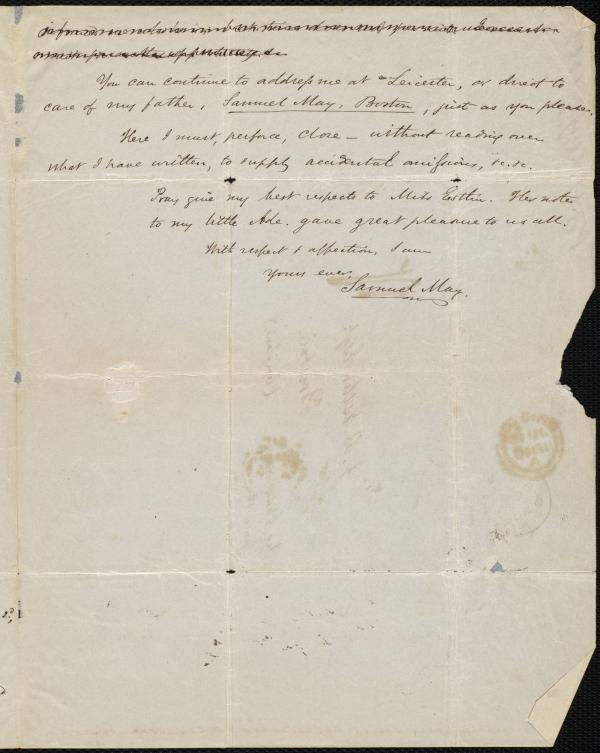 You can continue to address me at Leicester, or direct to
care of my father, Samuel May, Boston, just as you please.
Here I must, perforce, close — without reading over
what I have written, to supply accidental omissions, &c. &c.
Pray give my best respects to Miss Estlin. Her notes
to my little Ade. gave great pleasure to us all.
With respect & affection, I am
Yours ever,
Samuel May.